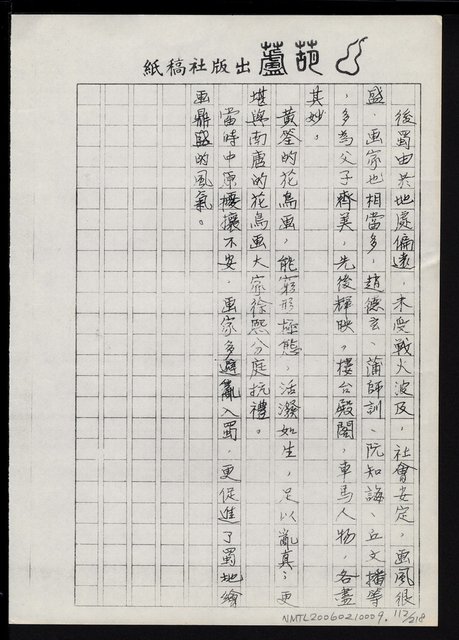 葫蘆出版社稿紙
後蜀由於地處偏遠,未受戰火波及,社會安定,画風很
盛.画家也相當多,趙德玄、蒲師訓、阮知誨、丘文播等
,多為父子齊美,先後輝映。樓台殿閣,車馬人物,各盡
其妙。
黃筌的花鳥画,能窮形極態,活潑如生,足以亂真;更
堪與南唐的花鳥画大家徐熙分庭抗禮。
當時中原擾攘不安,画家多避亂入蜀,更促進了蜀地繪
画鼎盛的風氣。
NMTL20060210009. 112/218